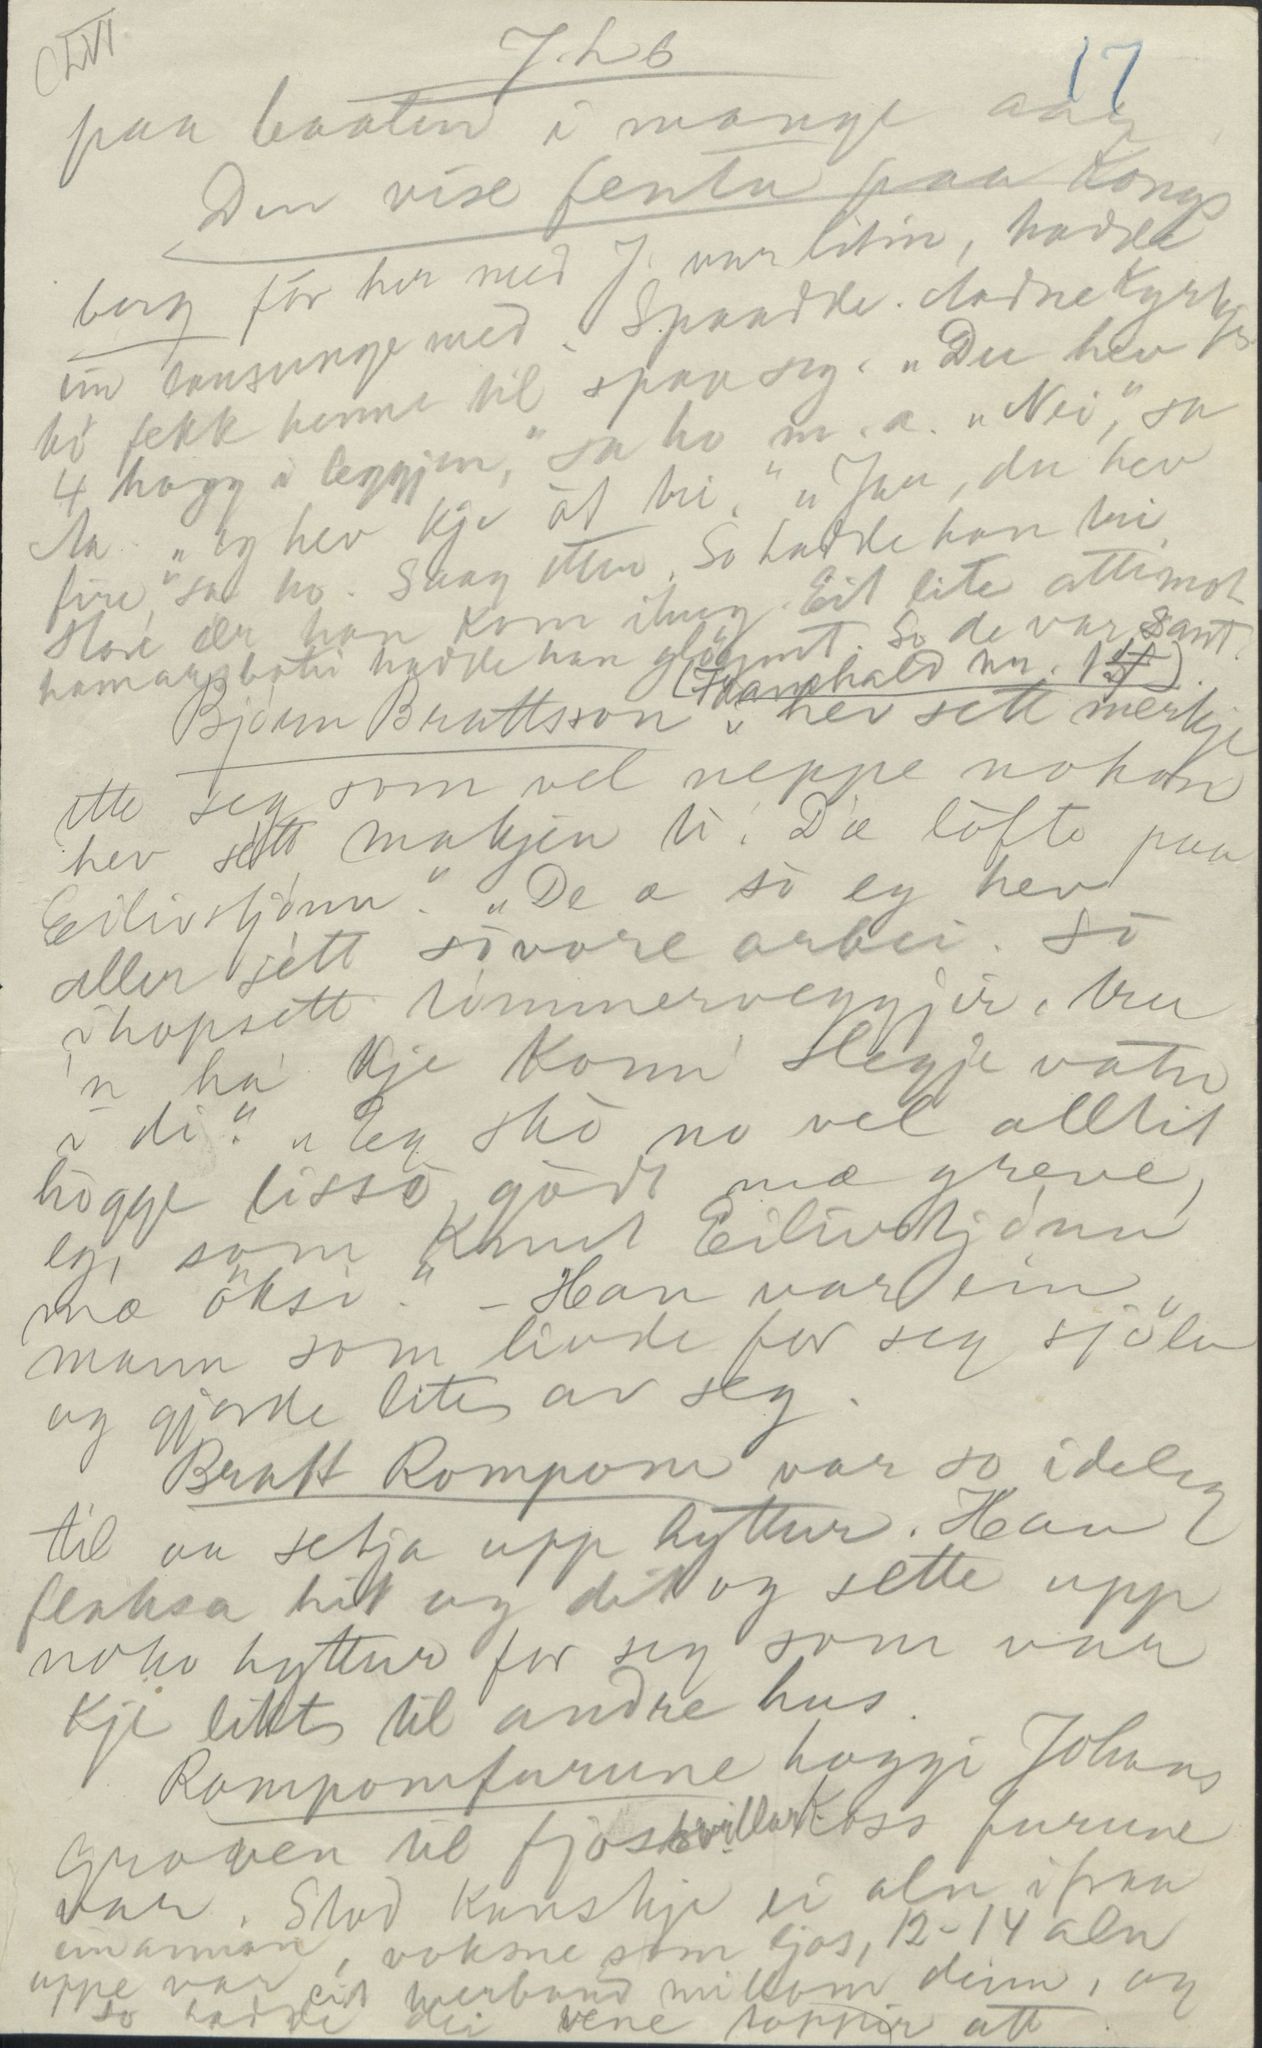 CLVI
J. h b
17
paa baaten i mange aar
Den vise fenta paa Kongs
berg för her med J. var liten, hadde
ein lausunge med. Spaadde. Aadne Kyrkje
bö fekk henne til spaa seg. „Du hev
4 hogg i leggjen," sa ho m. a. „Nei", sa
Aa. „eg hev kje åt tri." „Jau, du hev
fire," sa ho. Saag etter. So hadde han tri
store der han kom ihug. Eit lite attimot
hamarsbotn hadde han glöymt. So de var sant.
(Framhald nr. 1)
Björn Brattsson „hev sett merkje
ette seg som vel neppe nokon
hev sétt makjen ti. Dæ löfte paa
Eilivstjönn." „De æ so eg hev
aller sétt sövore arbei. So
ihopsett tömmerveggjir, tru
'n ha' kje konn' slegje vatn
i di." „Eg sko no vel alltit
högge lissö gödt mæ greve,
eg, som Knut Eilivstjönn
mæ öksi." – Han var ein
mann som livde for seg sjölv
og gjorde lite av seg.
Bratt Rompom var so ideleg
til aa setja upp hyttur. Han
flaksa hit og dit og sette upp
noko hyttur for seg som var
kje likt til andre hus.
Rompomfurune hoggji Johans
graven til fjossvillar. Koss furune
var. Stod kanskje ei aln ifraa
einannan, voksne som ljos, 12-14 aln
uppe var eit verband millom deim, og
so hadde dei vene toppir att